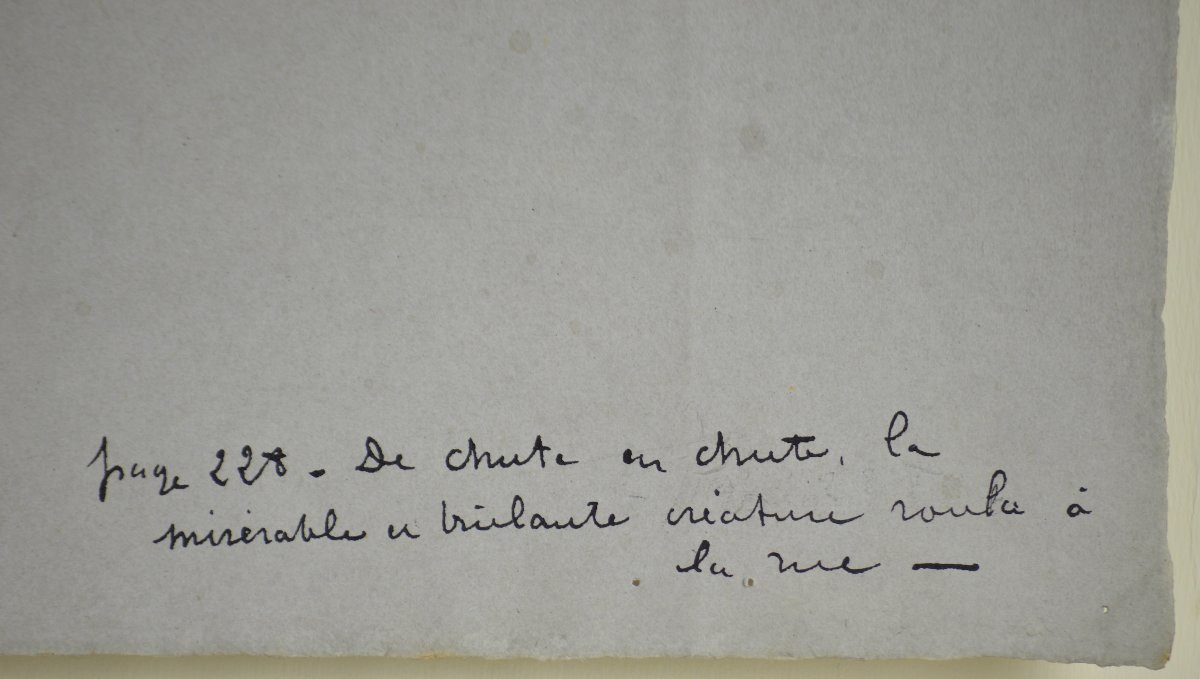 page 228. De chute en chute, la
misérable et brûlante créature roula à
la rue —